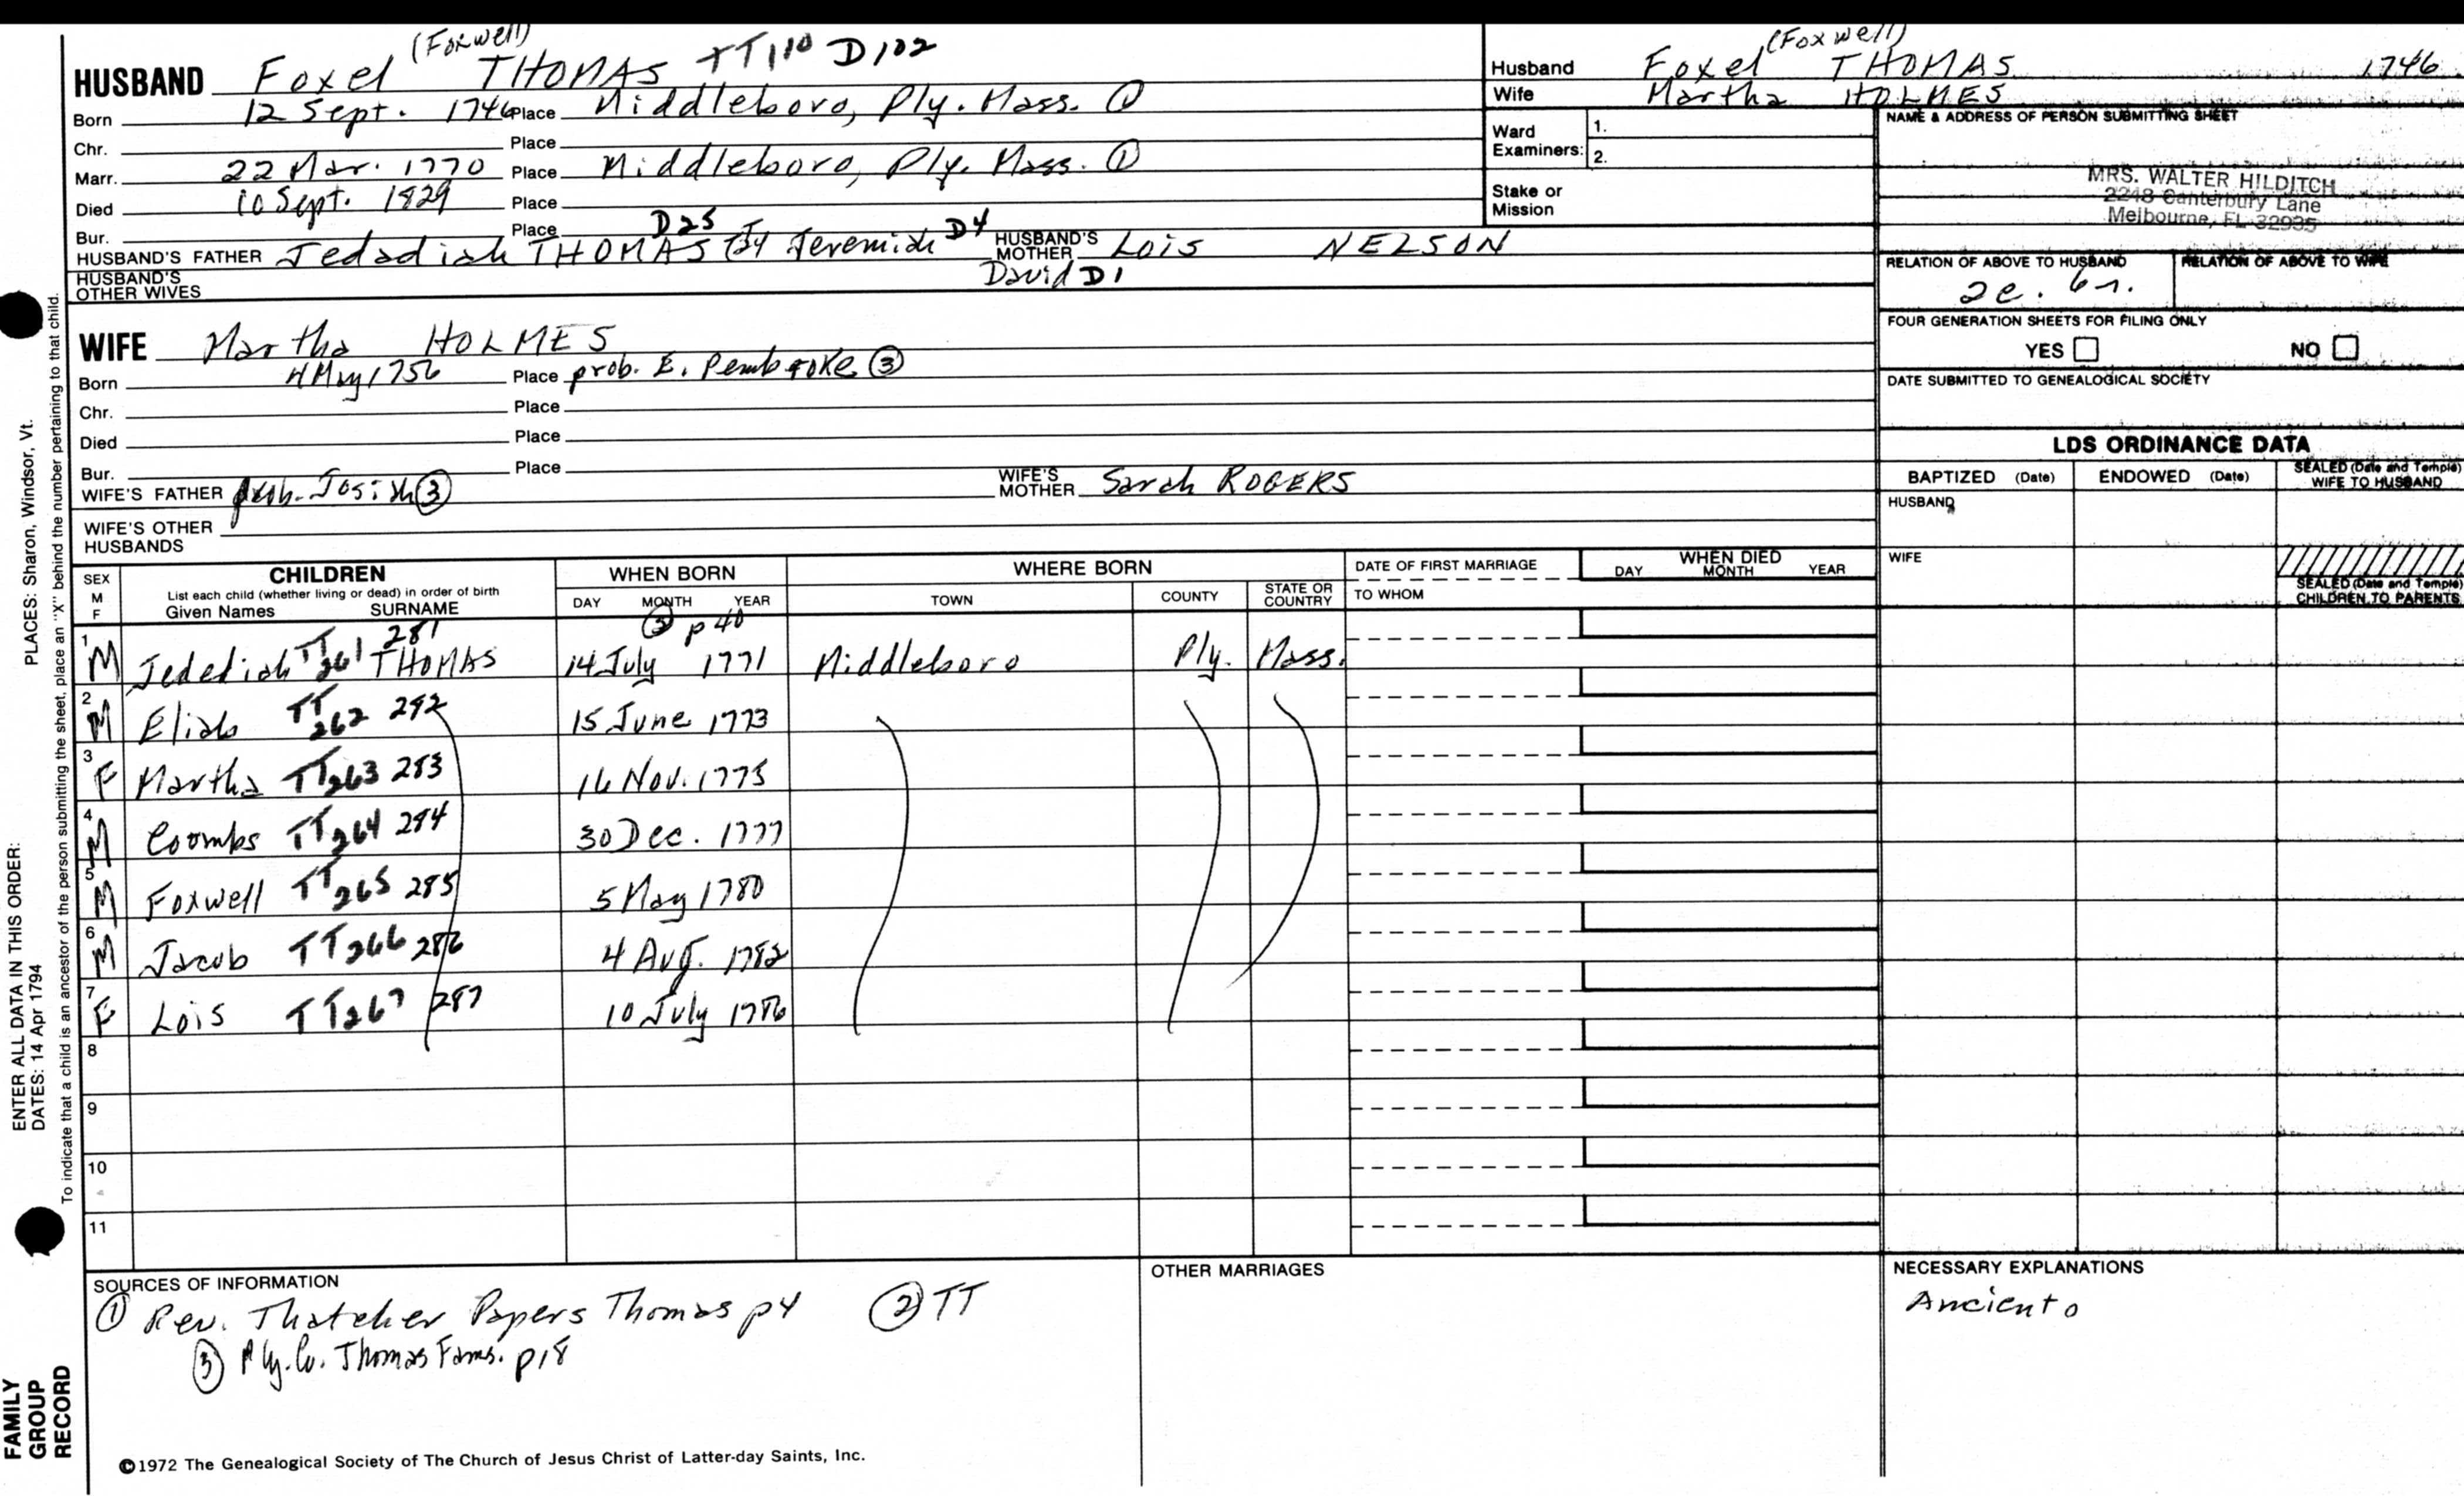 (Foxwell)
HUSBAND Foxel THOMAS TT110 D102
Born 12 Sept. 1746 Place Middleboro, Ply. Mass. ①
Chr. Place
Marr. 22 Mar. 1770 Place Middleboro, Ply. Mass. ①
Died 10 Sept. 1829 Place
Bur. Place
D25 D4
HUSBAND'S FATHER Jedediah THOMAS Jeremiah HUSBAND'S MOTHER Lois NELSON
HUSBAND'S OTHER WIVES David D1
(Foxwell)
Husband Foxel THOMAS 1746
Wife Martha HOLMES
Ward Examiners: 1.
2.
Stake or Mission
NAME & ADDRESS OF PERSON SUBMITTING SHEET
MRS. WALTER HILDITCH
2248 Canterbury Lane
Melbourne, FL 32935
RELATION OF ABOVE TO HUSBAND RELATION OF ABOVE TO WIFE
FOUR GENERATION SHEETS FOR FILING ONLY
YES NO
DATE SUBMITTED TO GENEALOGICAL SOCIETY
WIFE Martha HOLMES
Born 4 May 1756 Place prob. E. Pembroke ③
Chr. Place
Died Place
Bur. Place
WIFE'S FATHER prob. Josiah ③ WIFE'S MOTHER Sarah ROGERS
WIFE'S OTHER HUSBANDS
LDS ORDINANCE DATA
BAPTIZED (Date) ENDOWED (Date) SEALED (Date and Temple) WIFE TO HUSBAND
HUSBAND
WIFE
SEALED (Date and Temple) CHILDREN TO PARENTS
SEX M F CHILDREN List each child (whether living or dead) in order of birth Given Names SURNAME WHEN BORN DAY MONTH YEAR WHERE BORN TOWN COUNTY STATE OR COUNTRY DATE OF FIRST MARRIAGE TO WHOM WHEN DIED DAY MONTH YEAR
③ p40
1 M Jedediah TT261 281 THOMAS 14 July 1771 Middleboro Ply. Mass.
2 M Elias TT262 282 15 June 1773
3 F Martha TT263 283 16 Nov. 1775
4 M Coombs TT264 284 30 Dec. 1777
5 M Foxwell TT265 285 5 May 1780
6 M Jacob TT266 286 4 Aug. 1782
7 F Lois TT267 287 10 July 1786
8
9
10
11
SOURCES OF INFORMATION
① Rev. Thatcher Papers Thomas p4 ② TT
③ Ply. Co. Thomas Fams. p18
OTHER MARRIAGES
NECESSARY EXPLANATIONS
Ancient o
©1972 The Genealogical Society of The Church of Jesus Christ of Latter-day Saints, Inc.
PLACES: Sharon, Windsor, Vt.
To indicate that a child is an ancestor of the person submitting the sheet, place an "X" behind the number pertaining to that child.
ENTER ALL DATA IN THIS ORDER:
DATES: 14 Apr 1794
FAMILY
GROUP
RECORD